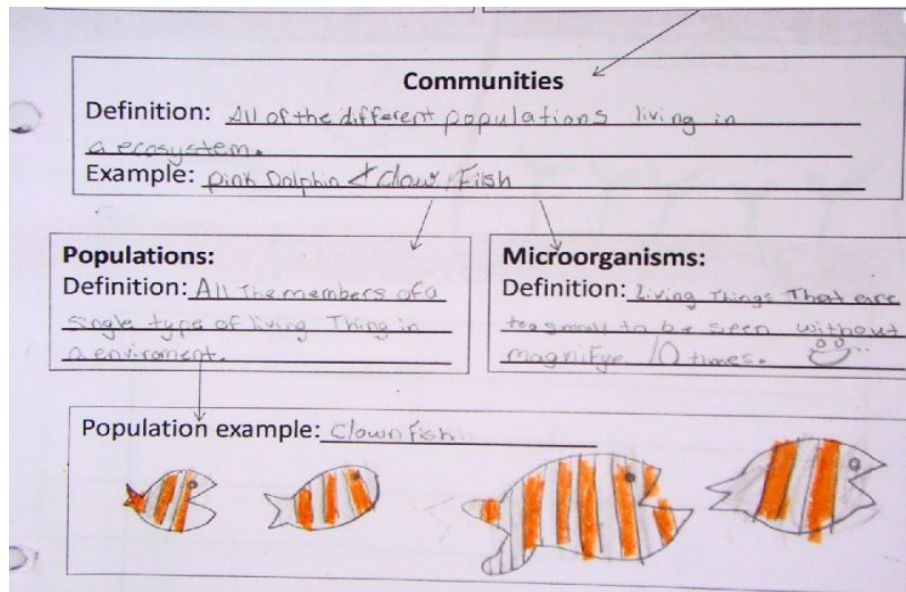 Communities
Definition: All of the different populations living in
a ecosystem.
Example: pink Dolphin & Clown Fish
Populations:
Definition: All The members of a
single type of living Thing in
a enviroment.
Microorganisms:
Definition: Living Things That are
too small to be seen without
magnifye 10 times.
Population example: Clown Fish